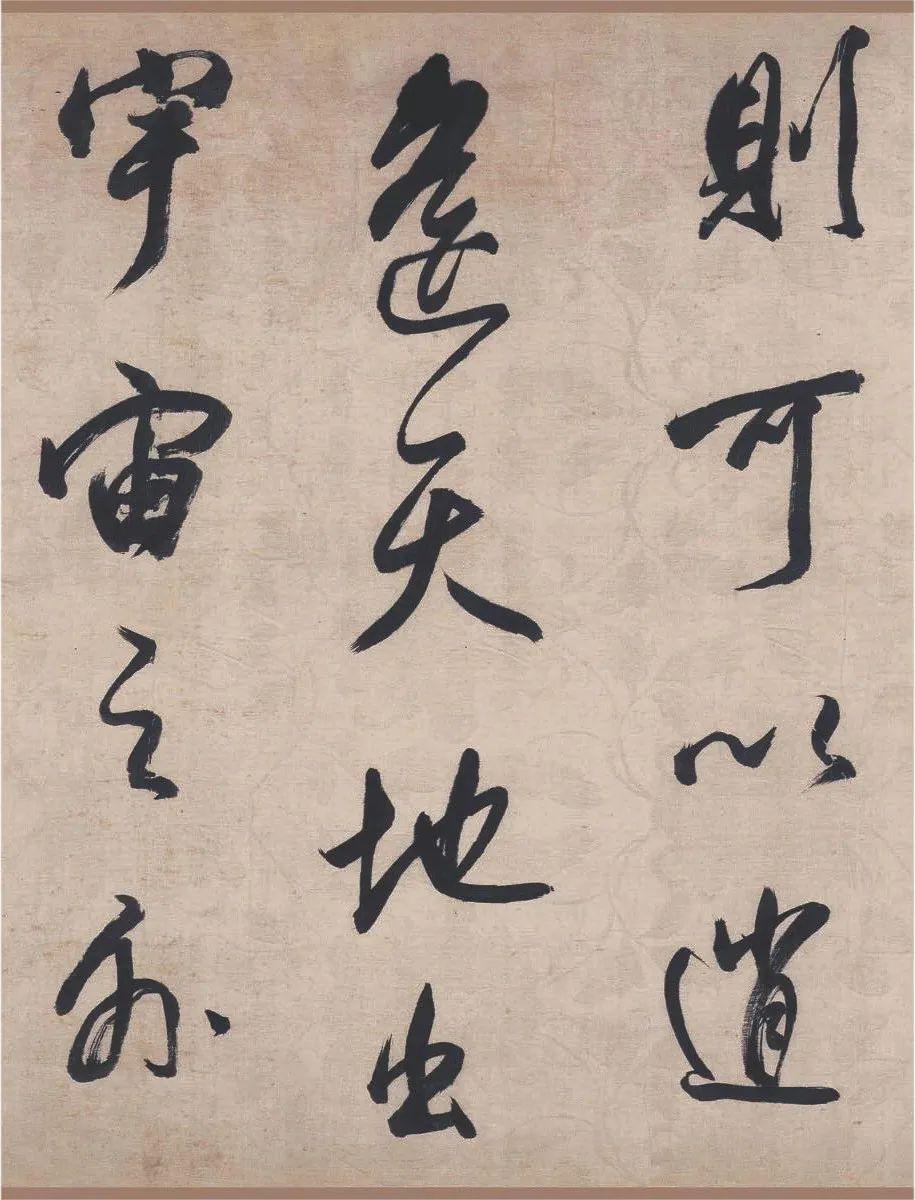 則可以逍
遙天地出
宇宙之外